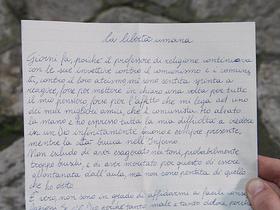 la libertà umana
Giorni fa, poiché il professore di religione continuava
con le sue invettive contro il comunismo e i comuni
sti, contro il loro ateismo, mi sono sentita spinta a
reagire, forse per mettere in chiaro una volta per tutte
il mio pensiero forse per l'affetto che mi lega ad uno
dei miei migliori amici che è comunista. Ho alzato
la mano e ho espresso tutta la mia difficoltà a credere
in un Dio infinitamente buono e sempre presente,
mentre la sta buia nell'
Non escludo di aver esagerato nei toni, probabilmente
troppo bruschi e di aver meritato per questo di essere
allontanata dall'aula, ma non sono pentita di quello
che ho detto.
È vero, non sono in grado di affidarmi a facili conso
tanto male e tanto dolore, perché